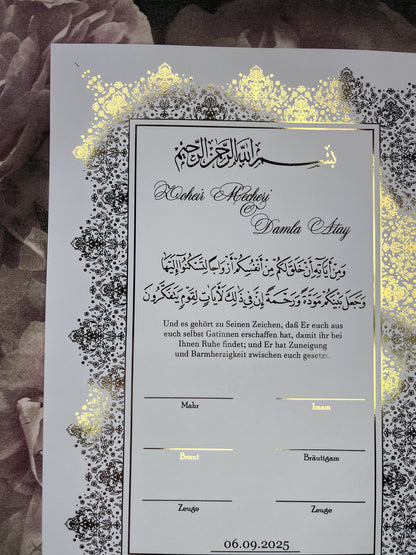 بسم الله الرحمن الرحيم
Zoheir Mecheri
&
Damla Atay
وَمِنْ آيَاتِهِ أَنْ خَلَقَ لَكُم مِّنْ أَنفُسِكُمْ أَزْوَاجًا لِّتَسْكُنُوا إِلَيْهَا
وَجَعَلَ بَيْنَكُم مَّوَدَّةً وَرَحْمَةً إِنَّ فِي ذَٰلِكَ لَآيَاتٍ لِّقَوْمٍ يَتَفَكَّرُونَ
Und es gehört zu Seinen Zeichen, daß Er euch aus
euch selbst Gatinnen erschaffen hat, damit ihr bei
Ihnen Ruhe findet; und Er hat Zuneigung
und Barmherzigkeit zwischen euch gesetzt.
Mahr Imam
Braut Bräutigam
Zeuge Zeuge
06.09.2025